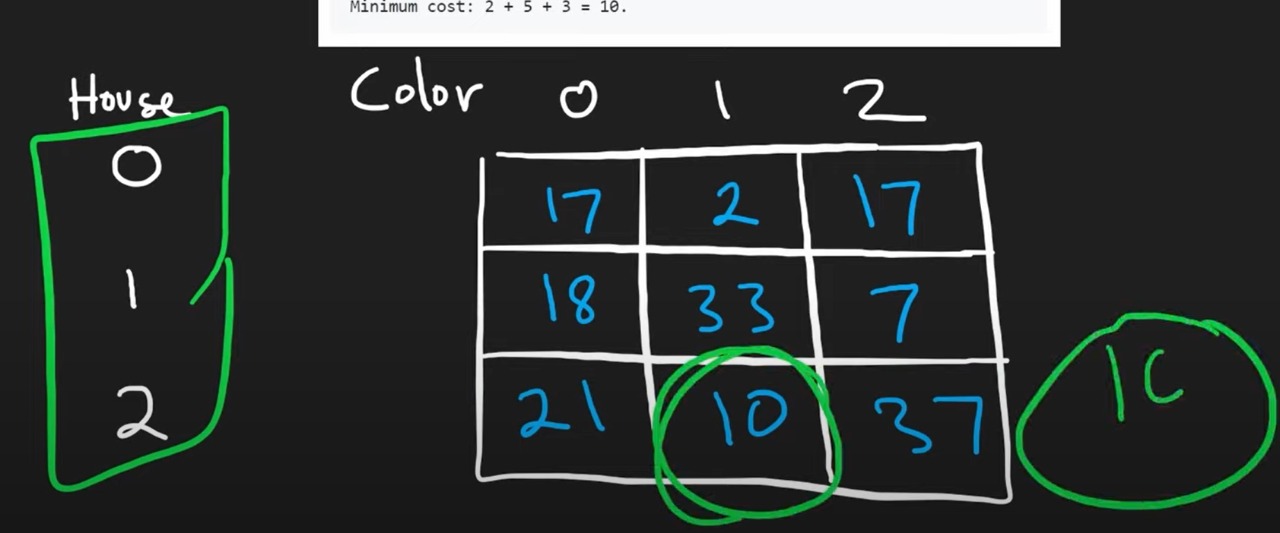 Minimum cost: 2 + 5 + 3 = 10.
House Color 0 1 2
0 17 2 17
1 18 33 7
2 21 10 37
1C